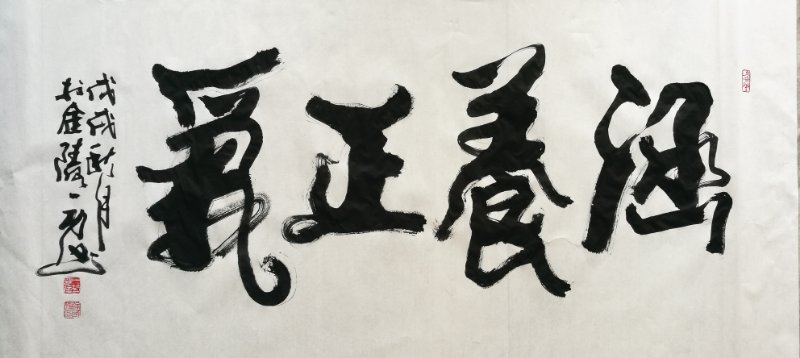 涵養正氣
戊戌秋月
於金陵